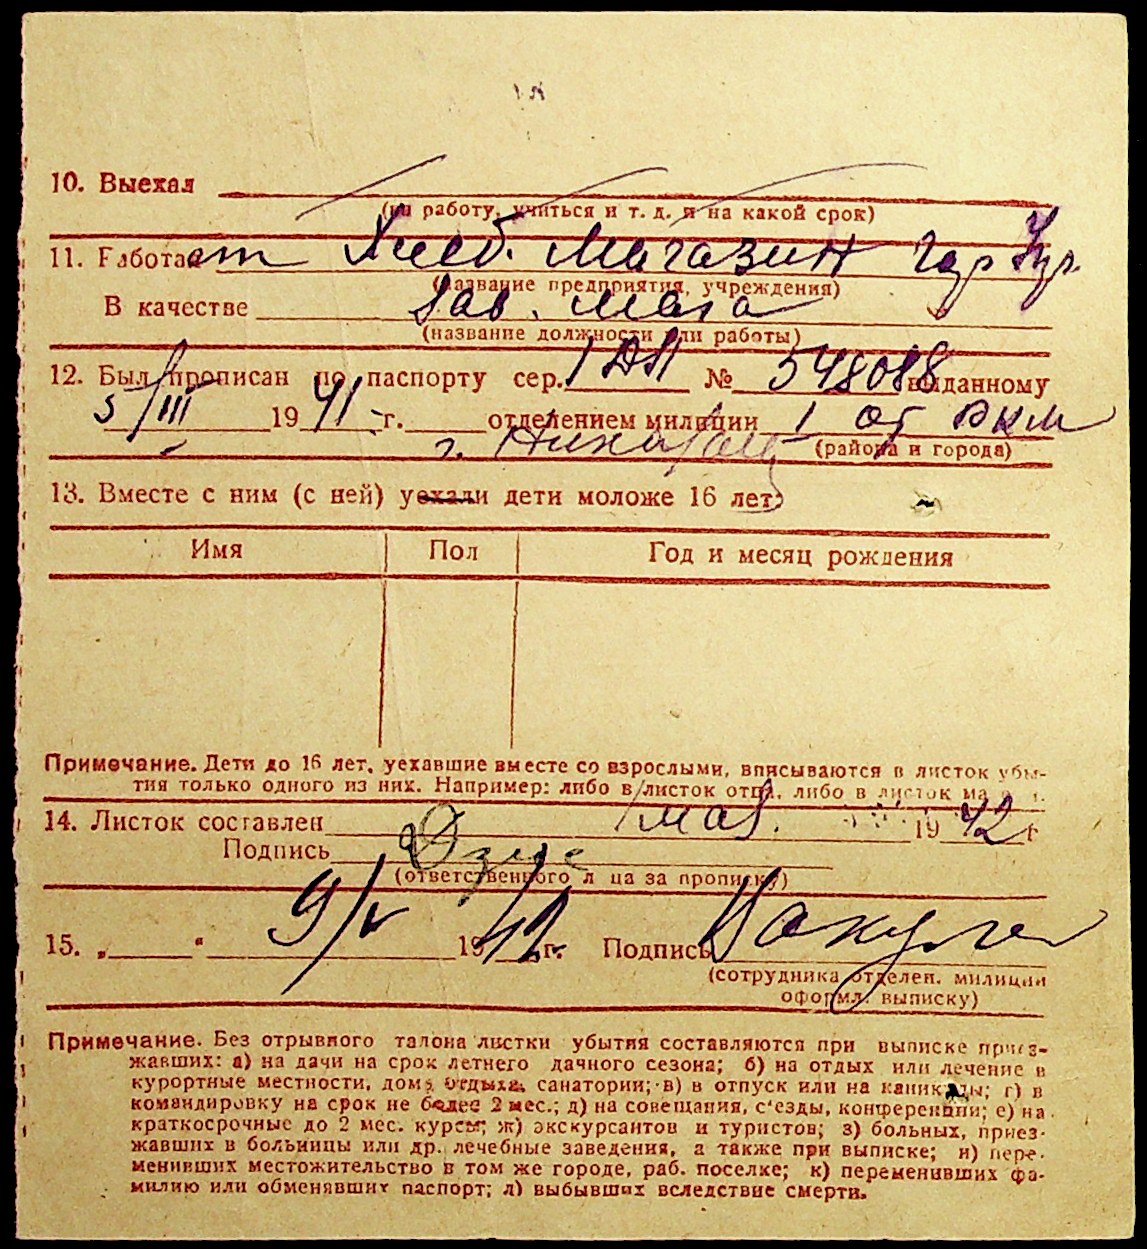 10. Выехал
(на работу, учиться и т. д. и на какой срок)
11. Работает Хлеб. Магазин
(название предприятия, учреждения)
В качестве Зав. мага
(название должности или работы)
12. Был прописан по паспорту сер. № 548088 выданному
5/III 1941 г. отделением милиции 1 от РКМ
г. (района и города)
13. Вместе с ним (с ней) уехали дети моложе 16 лет:
Имя Пол Год и месяц рождения
Примечание. Дети до 16 лет, уехавшие вместе со взрослыми, вписываются в листок убы-
тия только одного из них. Например: либо в листок отца, либо в листок
14. Листок составлен мая. 1942 г
Подпись
(ответственного лица за прописку)
15. „ “ 9/V 1942 г. Подпись
(сотрудника отделен. милиции
оформл. выписку)
Примечание. Без отрывного талона листки убытия составляются при выписке приез-
жавших: а) на дачи на срок летнего дачного сезона; б) на отдых или лечение в
курортные местности, дома отдыха, санатории; в) в отпуск или на каникулы; г) в
командировку на срок не более 2 мес.; д) на совещания, с'езды, конференции; е) на
краткосрочные до 2 мес. курсы; ж) экскурсантов и туристов; з) больных, приез-
жавших в больницы или др. лечебные заведения, а также при выписке; и) пере-
менивших местожительство в том же городе, раб. поселке; к) переменивших фа-
милию или обменявших паспорт; л) выбывших вследствие смерти.